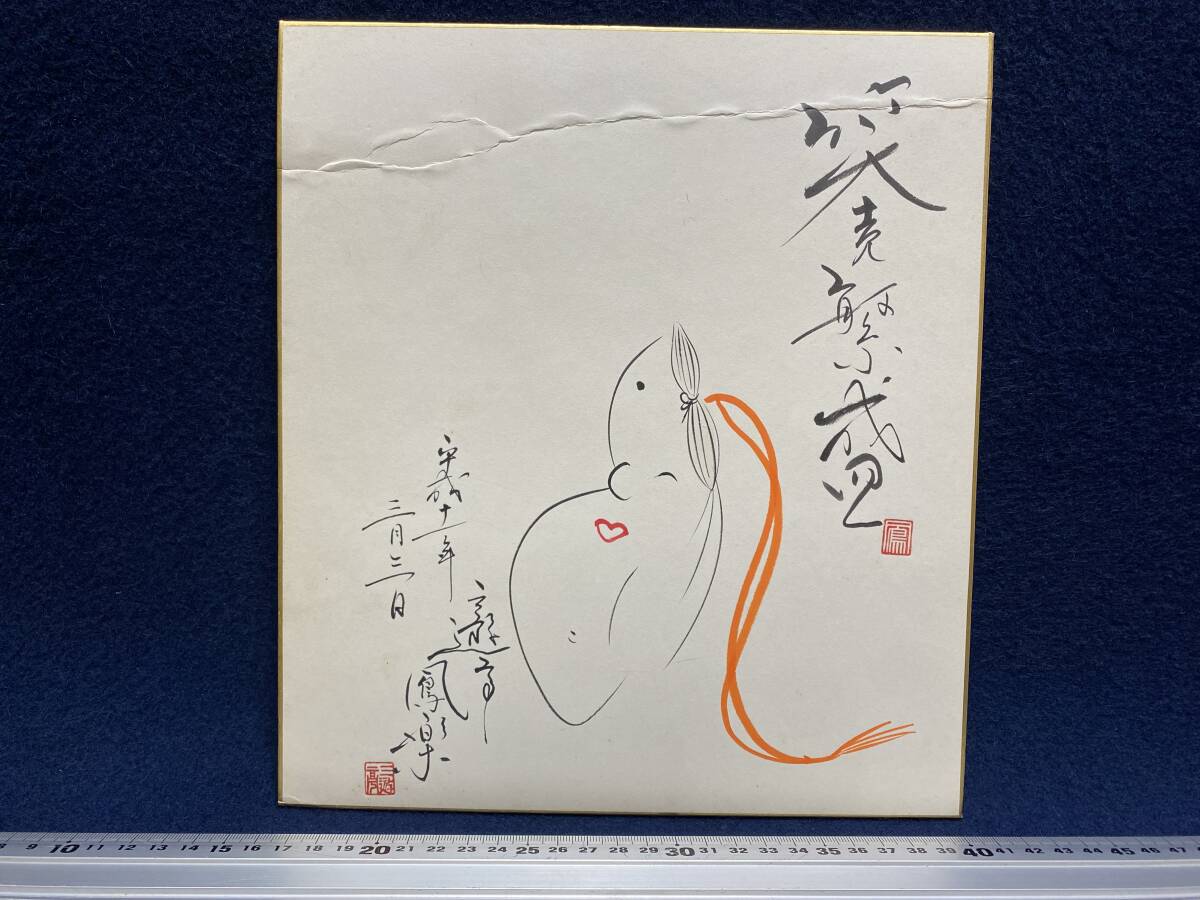 笑売繁盛
鳳
平成十一年
三月三日
三遊亭
鳳楽
8 9 10 11 12 13 14 15 16 17 18 19 20 21 22 23 24 25 26 27 28 29 30 31 32 33 34 35 36 37 38 39 40 41 42 43 44 45 46 47